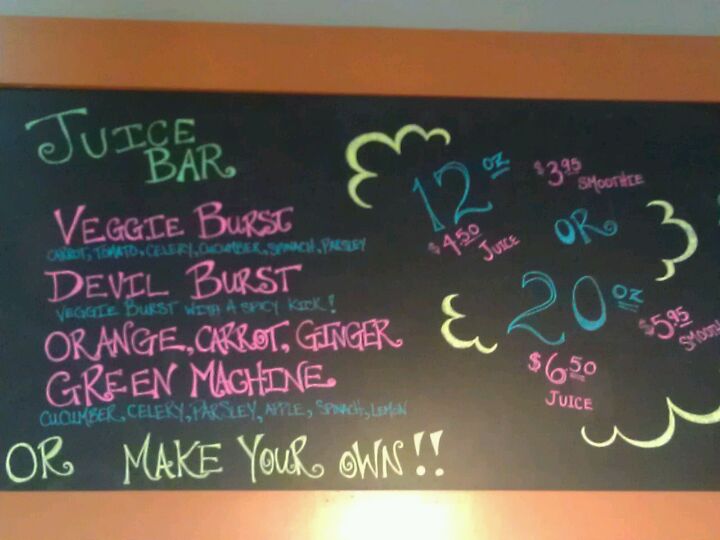 JUICE
BAR
VEGGIE BURST
CARROT, TOMATO, CELERY, CUCUMBER, SPINACH, PARSLEY
DEVIL BURST
VEGGIE BURST WITH A SPICY KICK!
ORANGE, CARROT, GINGER
GREEN MACHINE
CUCUMBER, CELERY, PARSLEY, APPLE, SPINACH, LEMON
OR MAKE YOUR OWN!!
12 oz
$3.95
SMOOTHIE
$4.50
JUICE
OR
20 oz
$5.95
SMOOTH
$6.50
JUICE